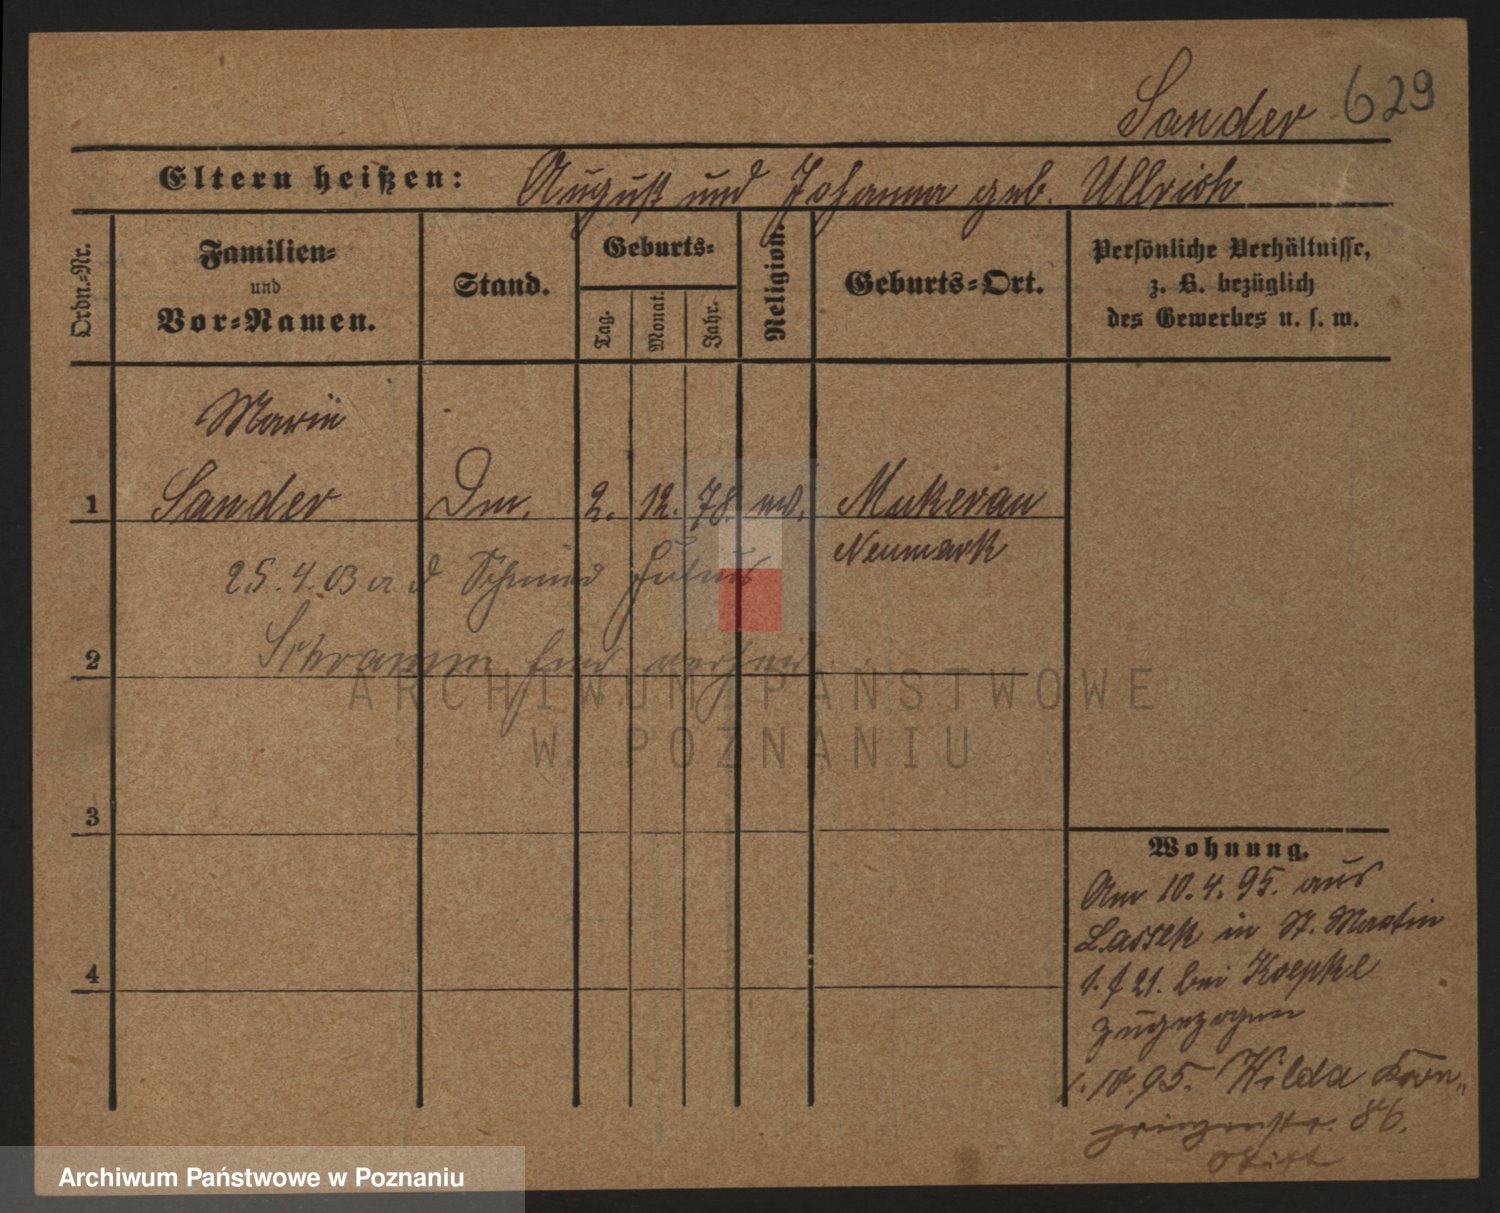 Sander 629
Eltern heißen: August und Johanna geb. Ullrich
Ordn.-Nr.
Familien-
und
Vor-Namen.
Stand.
Geburts-
Tag.
Monat.
Jahr.
Religion.
Geburts-Ort.
Persönliche Verhältnisse,
z. B. bezüglich
des Gewerbes u. s. w.
Marie
1 Sander Dm. 2. 12. 78. ev.
Neumark
25.4.03 a d Schmied Julius
2 Schramm
3
4
Wohnung.
Am 10.4.95. aus
Lassek in St. Martin
21. bei Koepke
zugezogen
1.10.95. Hilda Kron-
prinzenstr. 86.
ARCHIWUM PAŃSTWOWE
W POZNANIU
Archiwum Państwowe w Poznaniu